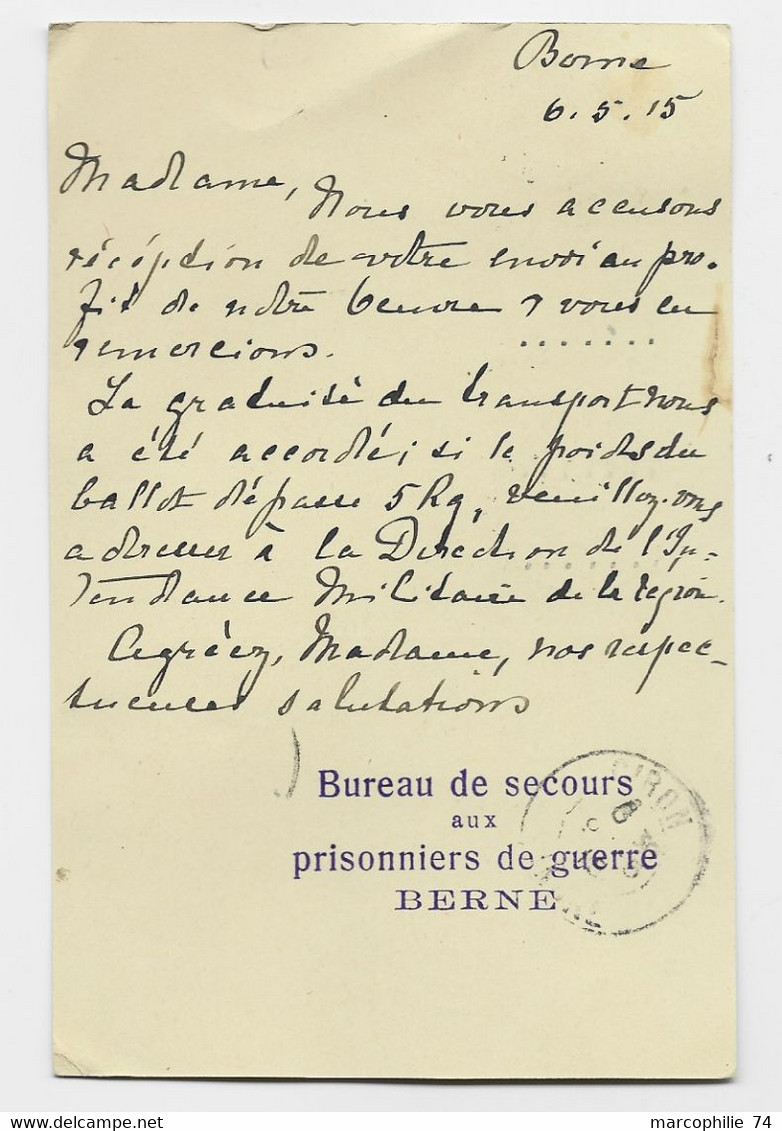 Berne
6.5.15
Madame,
Nous vous accusons
réception de votre envoi au pro-
fit de notre oeuvre & vous en
remercions.
La gratuité du transport nous
a été accordé; si le poids du
ballot dépasse 5 Kg, veuillez-vous
adresser à la Direction de l'In-
tendance Militaire de la région.
Agréez, Madame, nos respec-
tueuses salutations
Bureau de secours
aux
prisonniers de guerre
BERNE
marcophilie 74